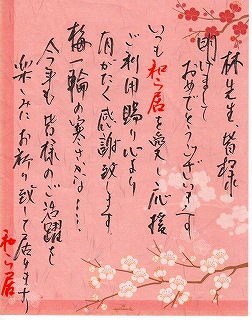 林先生 皆様
明けまして
おめでとうございます
いつも和ら居を愛し応援
ご利用賜り心より
有がたく感謝致します
梅一輪の寒さかな……
今年も皆様のご活躍を
楽しみにお祈り致して居ります
和ら居